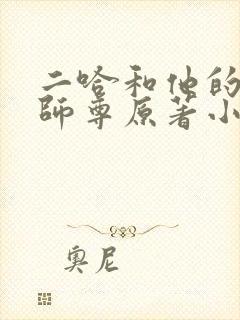 二哈和他的
師尊原著小
奧尼